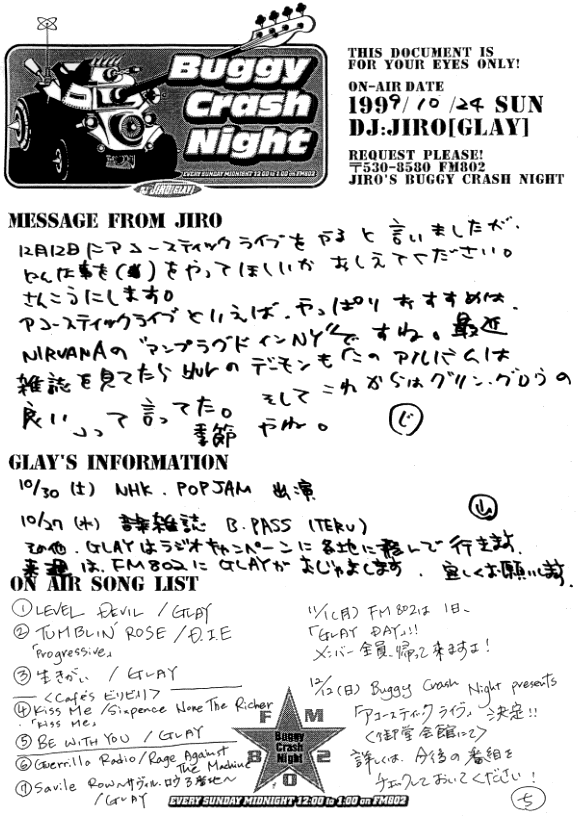 Buggy
Crash
Night
EVERY SUNDAY MIDNIGHT 12:00 to 1:00 on FM802
DJ: JIRO(GLAY)
THIS DOCUMENT IS
FOR YOUR EYES ONLY!
ON-AIR DATE
1999/10/24 SUN
DJ:JIRO[GLAY]
REQUEST PLEASE!
〒530-8580 FM802
JIRO'S BUGGY CRASH NIGHT
MESSAGE FROM JIRO
12月12日にアコースティックライブをやると言いましたが、
どんな事を()をやってほしいか おしえてください。
さんこうにします。
アコースティックライブといえば、やっぱりおすすめは、
NIRVANAの"アンプラグド インNY"ですね。最近
雑誌を見てたら のデーモンも「このアルバムは
良い」って言ってた。 そして これからはグリン・グロウの
季節 やね。 じ
GLAY'S INFORMATION
10/30 (土) NHK. POPJAM 出演
10/27 (水) 雑誌 B.PASS (TERU)
その他、GLAYはラジオキャンペーンに各地に飛んで行きます。
来週は、FM802にGLAYがおじゃまします。宜しくお願いします。
山
ON AIR SONG LIST
① LEVEL DEVIL / GLAY
② TUMBLIN' ROSE / D.I.E
「Progressive」
③ 生きがい / GLAY
<Cafés ビリビリ>
④ Kiss Me / Sixpence None The Richer
「Kiss Me」
⑤ BE WITH YOU / GLAY
⑥ Guerrilla Radio / Rage Against
The Machine
⑦ Savile Row〜サヴィル・ロウ3番地〜
/ GLAY
11/1(月) FM802は 1日、
「GLAY DAY」!!
メンバー全員、帰って来ますよ!
12/12(日) Buggy Crash Night presents
「アコースティックライヴ」決定!!
<御堂会館にて>
詳しくは、今後の番組を
チェックしておいてください!
ち
FM
Buggy
Crash
Night
802
EVERY SUNDAY MIDNIGHT 12:00 to 1:00 on FM802